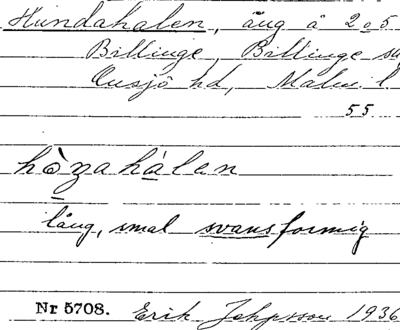 Hundahalen, äng å 2o5
Billinge, Billinge
Onsjö hd, Malm. l.
55
hòzahálen
lång, smal svansformig
Nr 5708. Erik 1936